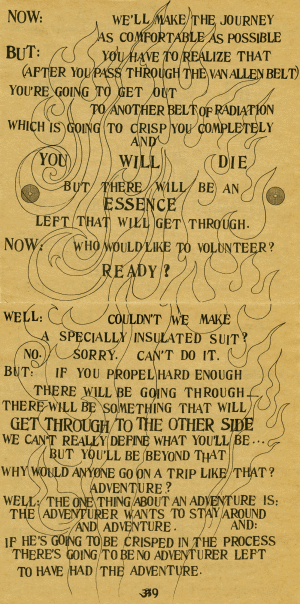 NOW: WE'LL MAKE THE JOURNEY
AS COMFORTABLE AS POSSIBLE
BUT: YOU HAVE TO REALIZE THAT
(AFTER YOU PASS THROUGH THE VAN ALLEN BELT)
YOU'RE GOING TO GET OUT
TO ANOTHER BELT OF RADIATION
WHICH IS GOING TO CRISP YOU COMPLETELY
AND
YOU WILL DIE
BUT THERE WILL BE AN
ESSENCE
LEFT THAT WILL GET THROUGH.
NOW: WHO WOULD LIKE TO VOLUNTEER?
READY?
WELL: COULDN'T WE MAKE
A SPECIALLY INSULATED SUIT?
NO. SORRY. CAN'T DO IT.
BUT: IF YOU PROPEL HARD ENOUGH
THERE WILL BE GOING THROUGH—
THERE WILL BE SOMETHING THAT WILL
GET THROUGH TO THE OTHER SIDE
WE CAN'T REALLY DEFINE WHAT YOU'LL BE...
BUT YOU'LL BE BEYOND THAT
WHY WOULD ANYONE GO ON A TRIP LIKE THAT?
ADVENTURE?
WELL: THE ONE THING ABOUT AN ADVENTURE IS:
THE ADVENTURER WANTS TO STAY AROUND
AND ADVENTURE. AND:
IF HE'S GOING TO BE CRISPED IN THE PROCESS
THERE'S GOING TO BE NO ADVENTURER LEFT
TO HAVE HAD THE ADVENTURE.